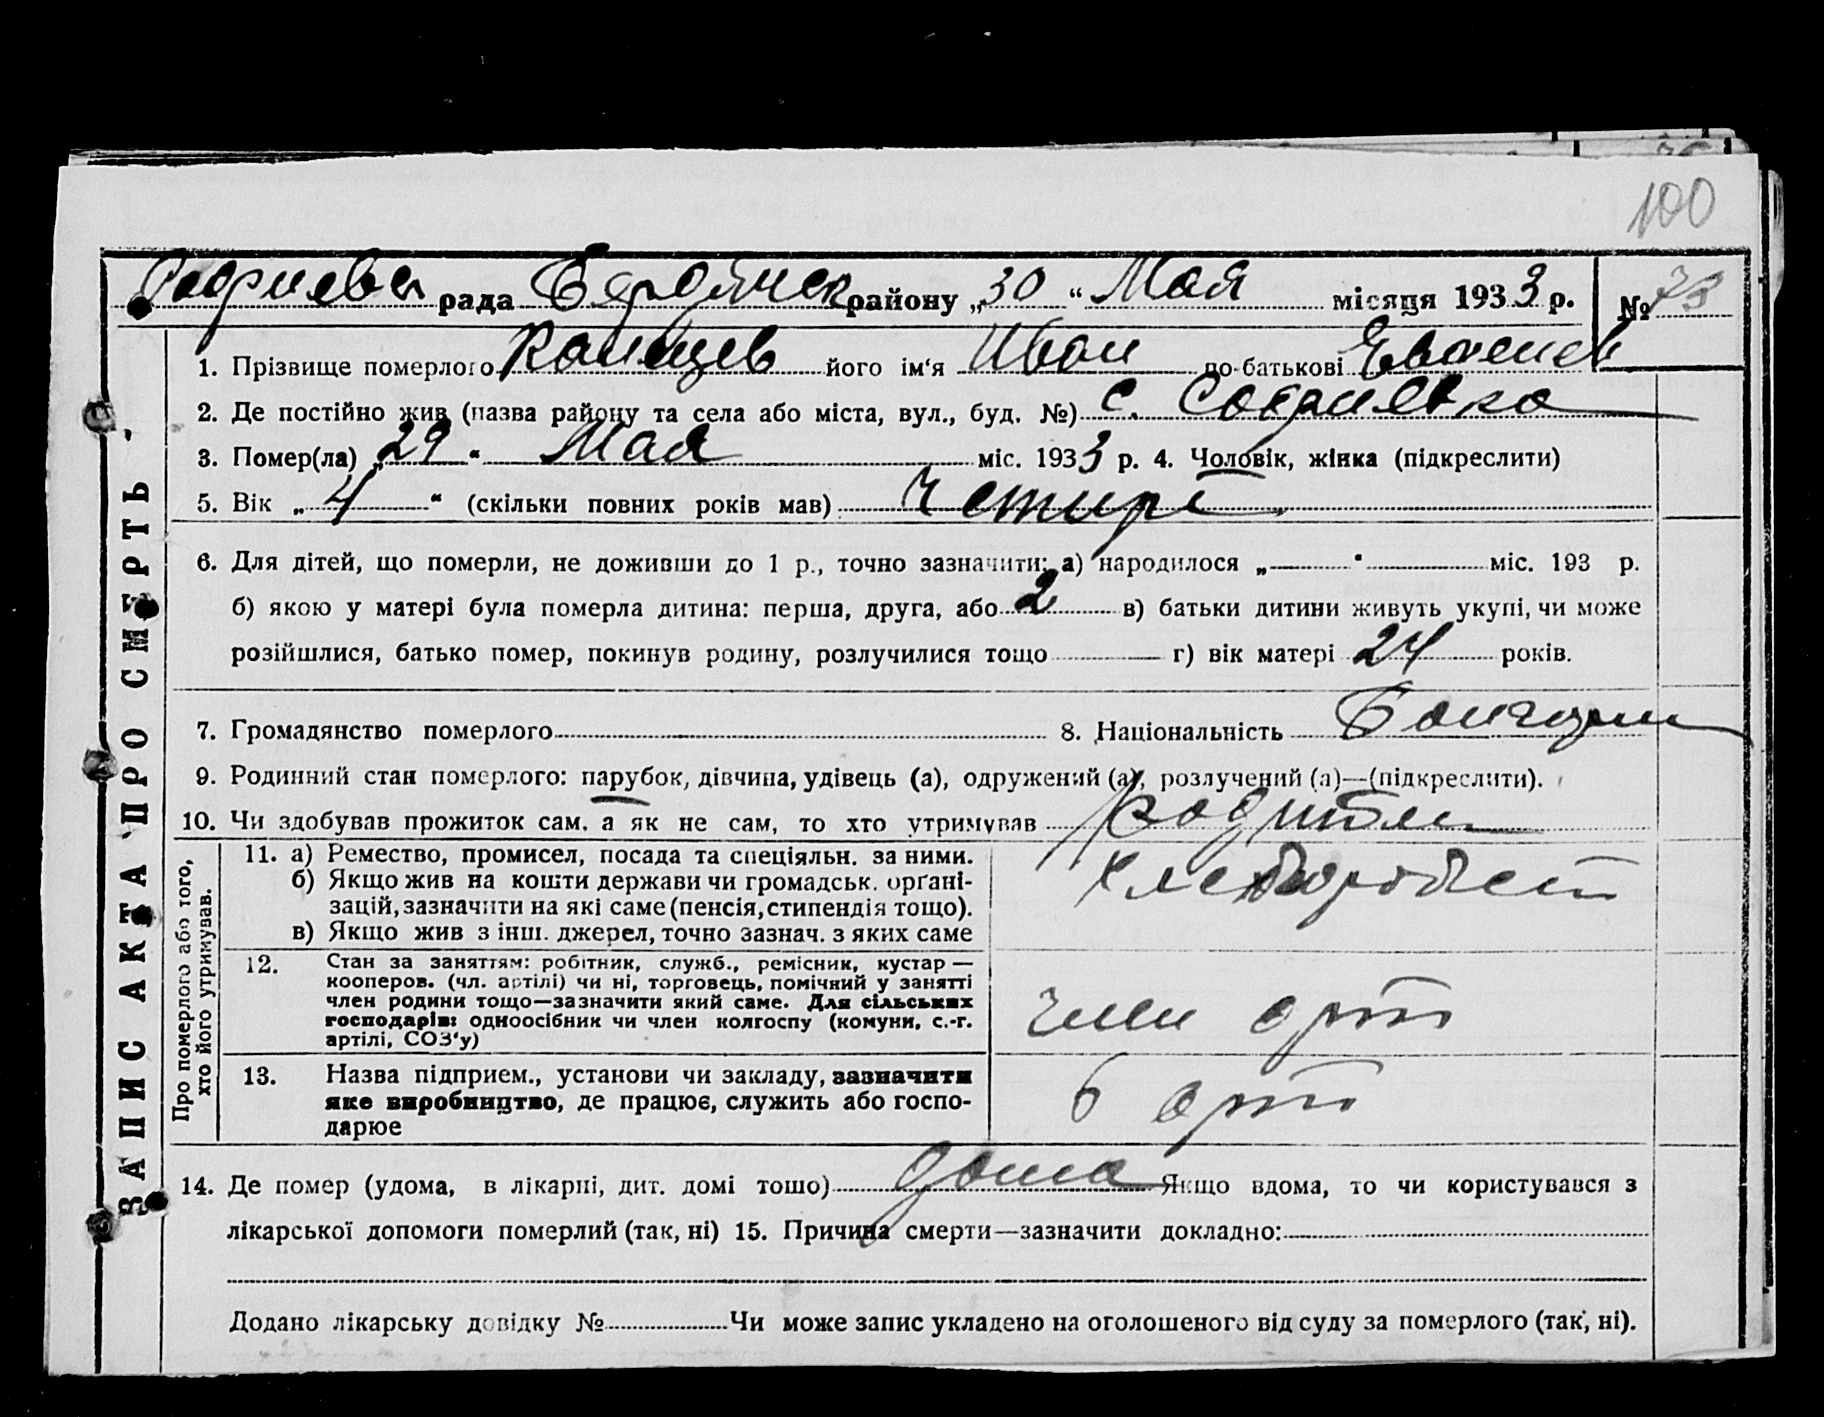 100
рада Бердянск району „30“ Мая місяця 1933 р. № 73
1. Прізвище померлого його ім'я Иван по-батькові
2. Де постійно жив (назва району та села або міста, вул., буд. №) с. Софиевка
3. Помер(ла) „29“ Мая міс. 1933 р. 4. Чоловік, жінка (підкреслити)
5. Вік „4“ (скільки повних років мав) Четире
6. Для дітей, що померли, не доживши до 1 р., точно зазначити: а) народилося „ “ міс. 193 р.
б) якою у матері була померла дитина: перша, друга, або 2 в) батьки дитини живуть укупі, чи може
розійшлися, батько помер, покинув родину, розлучилися тощо г) вік матері 24 років.
7. Громадянство померлого 8. Національність
9. Родинний стан померлого: парубок, дівчина, удівець (а), одружений (а), розлучений (а)—(підкреслити).
10. Чи здобував прожиток сам, а як не сам, то хто утримував родители
Про померлого або того, хто його утримував.
11. а) Ремество, промисел, посада та спеціяльн. за ними.
б) Якщо жив на кошти держави чи громадськ. орґані-
зацій, зазначити на які саме (пенсія, стипендія тощо).
в) Якщо жив з інш. джерел, точно зазнач. з яких саме
12. Стан за заняттям: робітник, служб., ремісник, кустар —
кооперов. (чл. артілі) чи ні, торговець, помічний у занятті
член родини тощо—зазначити який саме. Для сільських
господарів: одноосібник чи член колгоспу (комуни, с.-г.
артілі, СОЗ'у)
член арт
13. Назва підприєм., установи чи закладу, зазначити
яке виробництво, де працює, служить або госпо-
дарює
в арт
14. Де помер (удома, в лікарні, дит. домі тощо) дома Якщо вдома, то чи користувався з
лікарської допомоги померлий (так, ні) 15. Причина смерти—зазначити докладно:
Додано лікарську довідку № Чи може запис укладено на оголошеного від суду за померлого (так, ні).
ЗАПИС АКТА ПРО СМЕРТЬ